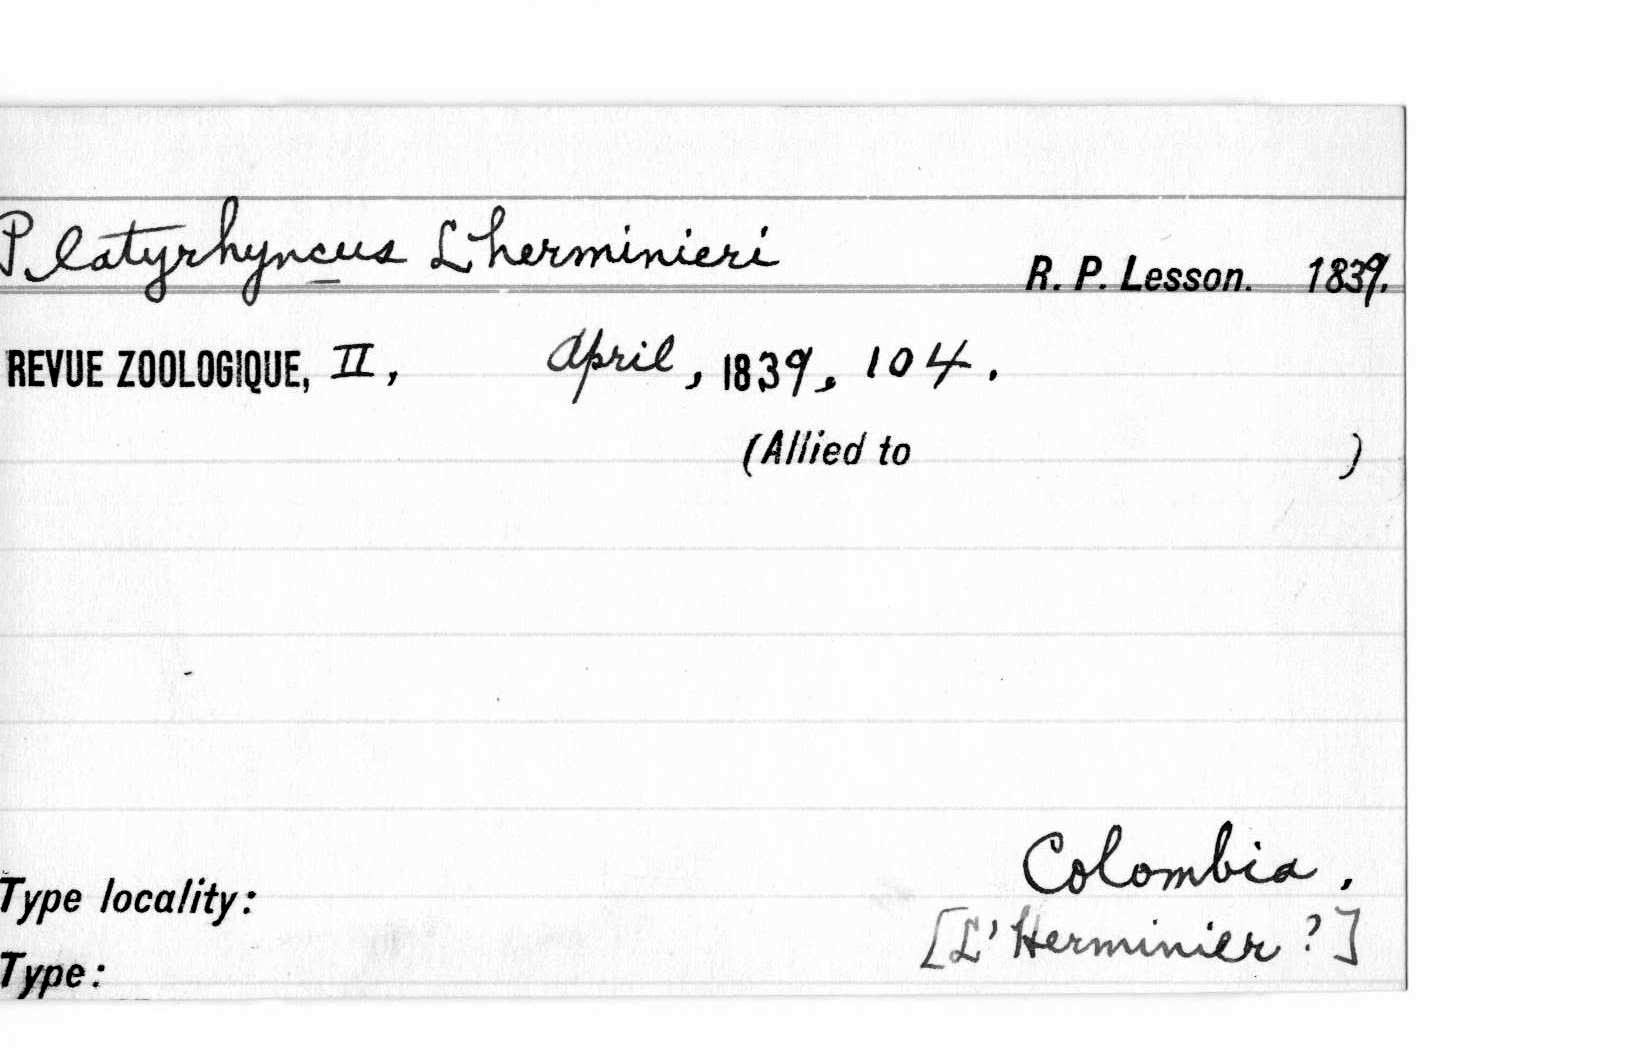 Platyrhyncus Lherminieri
R. P. Lesson. 1839.
REVUE ZOOLOGIQUE, II, April, 1839, 104.
(Allied to )
Colombia,
Type locality:
[L'Herminier ?]
Type: